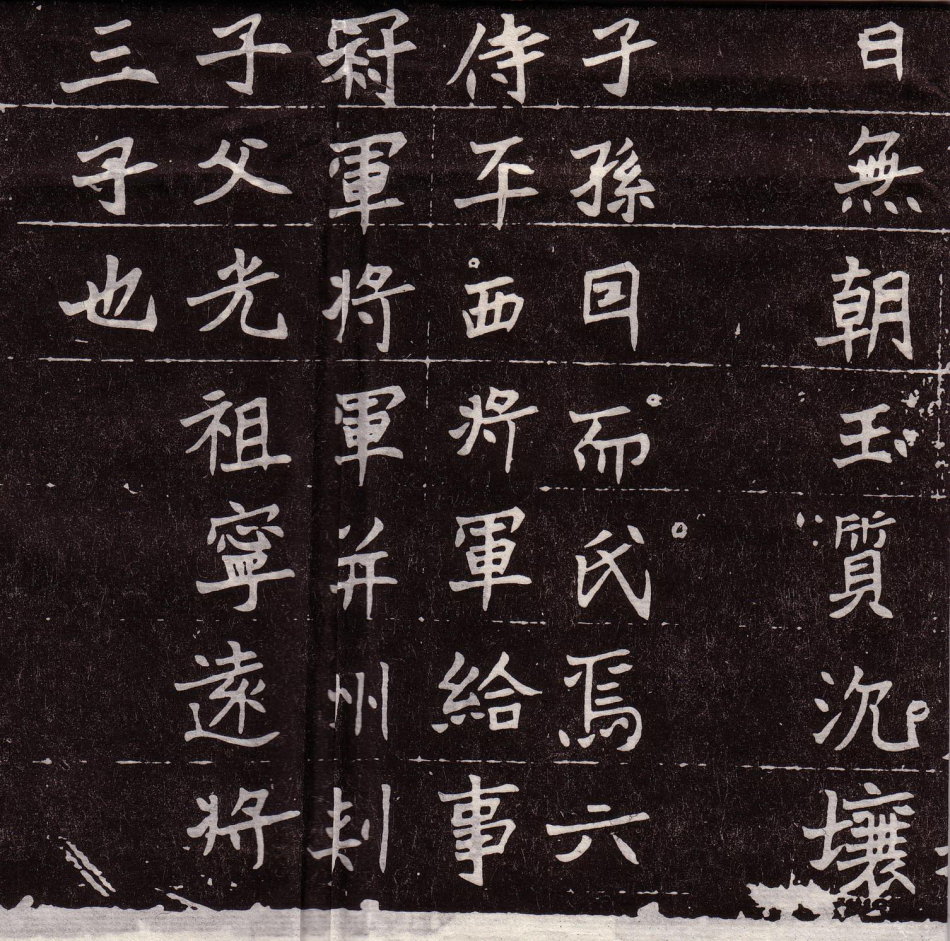 日無朝玉質沉壤
子孫囙而氏焉六
侍平西將軍給事
冠軍將軍并州刺
子父光祖寧遠將
三子也